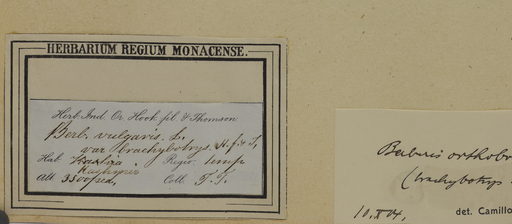 HERBARIUM REGIUM MONACENSE.
Herb. Ind. Or. Hook. fil. & Thomson
Berb. vulgaris. L.
var brachybotrys. H.f. & T.
Hab. Regio temp.
Alt. 3500 ped. Coll. T.T.
Berberis orthobo
(brachybotrys
10.X 04, det. Camillo